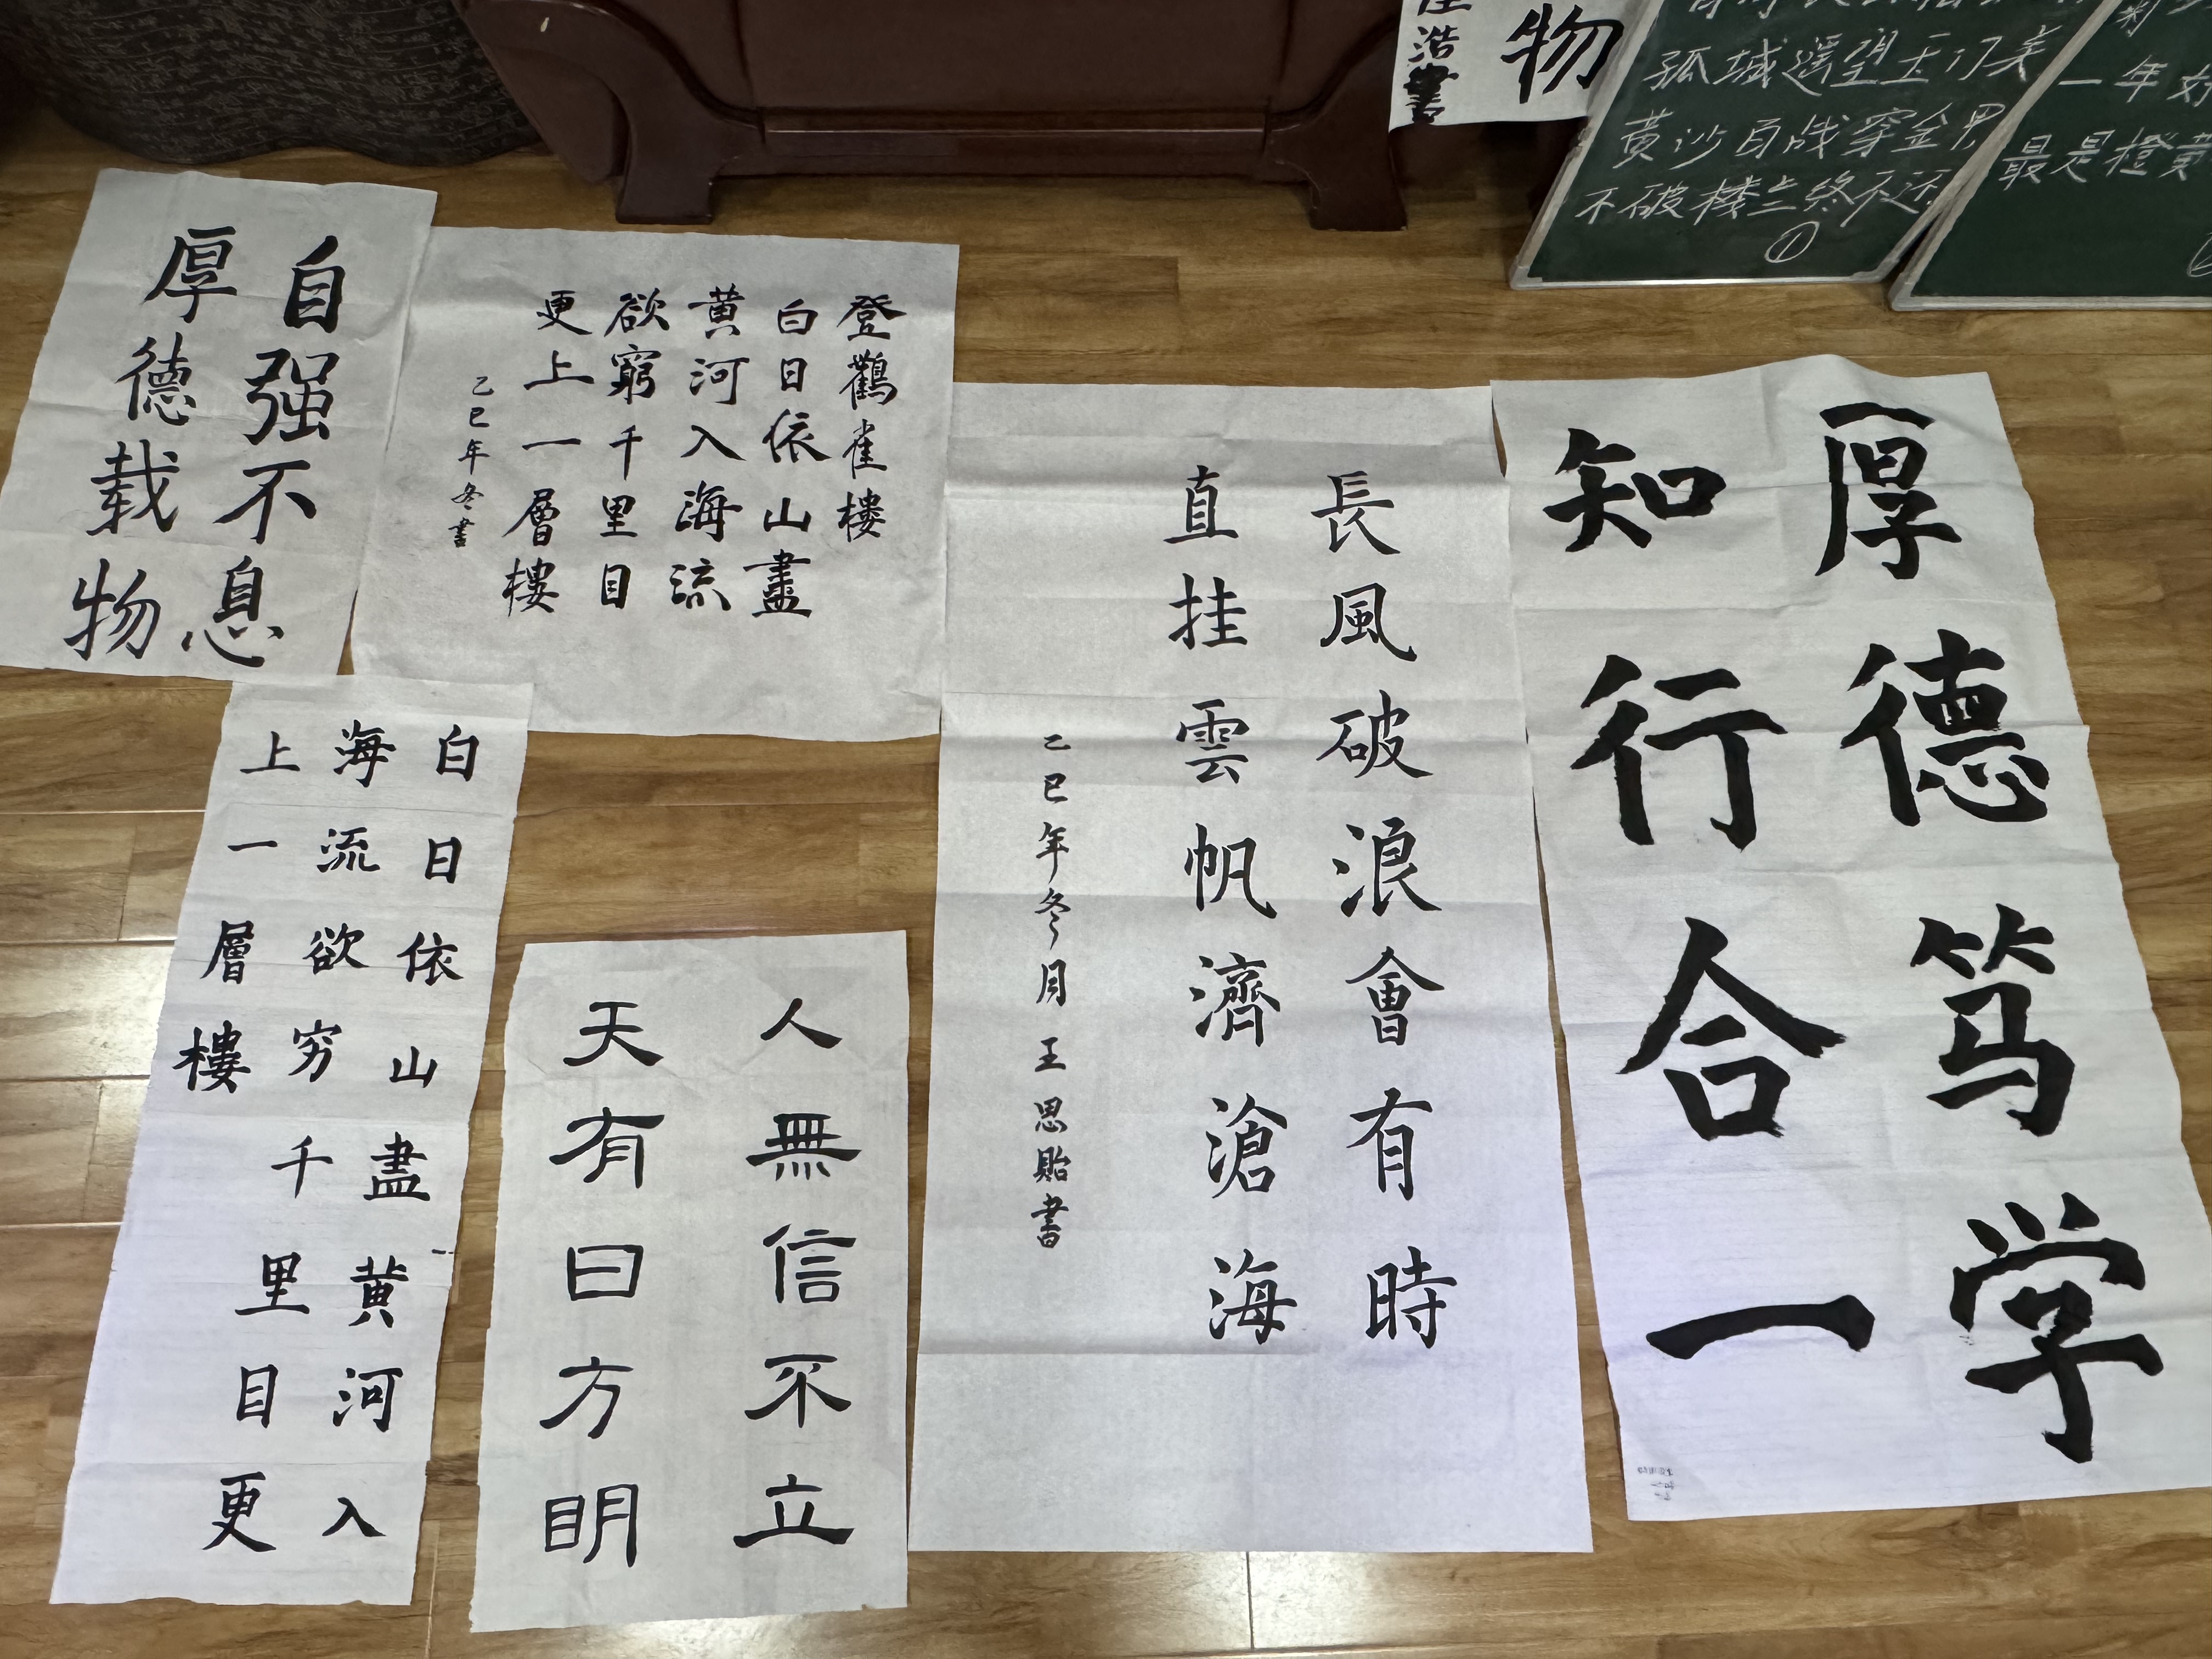 自强不息
厚德载物
登鸛雀樓
白日依山盡
黄河入海流
欲窮千里目
更上一層樓
乙巳年冬書
白日依山盡黄河入
海流欲穷千里目更
上一層樓
人無信不立
天有日方明
長風破浪會有時
直挂雲帆濟滄海
乙巳年冬月王思貽書
厚德笃学
知行合一
物
浩書
孤城遥望玉门关
黄沙百战穿金甲
不破楼兰终不还
①
一年好
最是橙黄